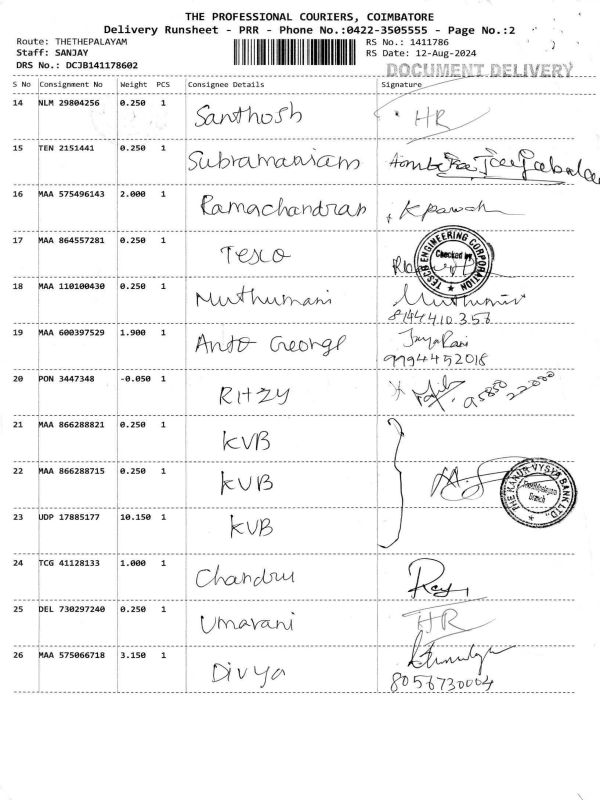 THE PROFESSIONAL COURIERS, COIMBATORE
Delivery Runsheet - PRR - Phone No.:0422-3505555 - Page No.:2
Route: THETHEPALAYAM RS No.: 1411786
Staff: SANJAY RS Date: 12-Aug-2024
DRS No.: DCJB141178602 DOCUMENT DELIVERY
S No Consignment No Weight PCS Consignee Details Signature
14 NLM 29804256 0.250 1 Santhosh HR
15 TEN 2151441 0.250 1 Subramaniam
16 MAA 575496143 2.000 1 Ramachandran
17 MAA 864557281 0.250 1 Tesco
TESCO ENGINEERING CORPORATION
Checked by
18 MAA 110100430 0.250 1 Muthumani Muthumani
8144410356
19 MAA 600397529 1.900 1 Anto George JayaRani
9994452018
20 PON 3447348 -0.050 1 RITZY 95850 22000
21 MAA 866288821 0.250 1 KVB
22 MAA 866288715 0.250 1 KVB
THE KARUR VYSYA BANK LTD.
Branch
23 UDP 17885177 10.150 1 KVB
24 TCG 41128133 1.000 1 Chandru
25 DEL 730297240 0.250 1 Umarani HR
26 MAA 575066718 3.150 1 Divya
8056730004